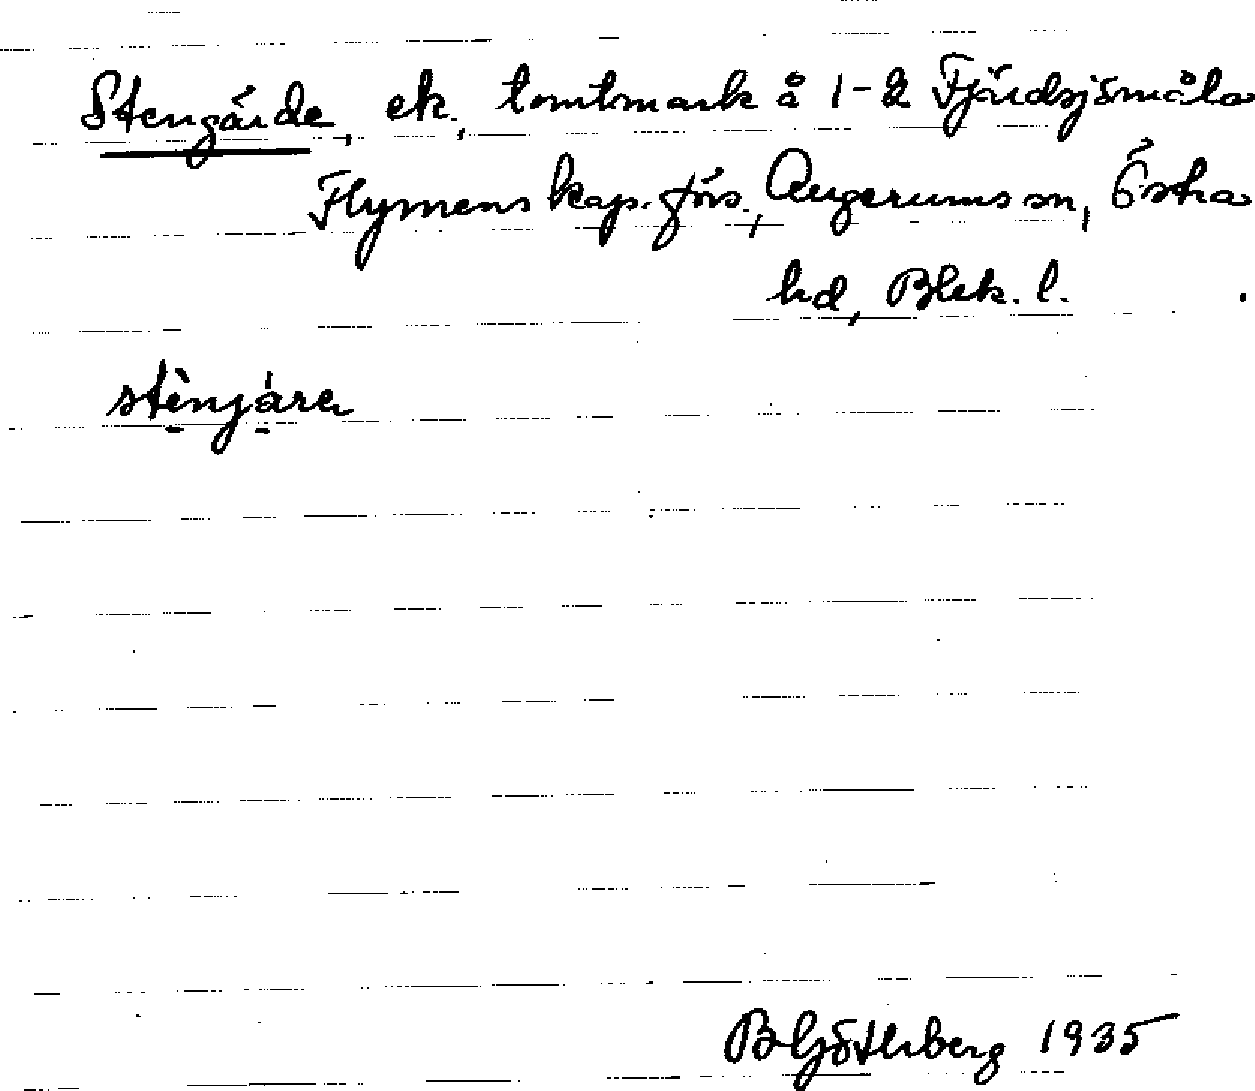 Stengärde, ek., tomtmark å 1-2 Fjärdsjömåla
Flymens kap. förs., Augerums sn, Östra
hd, Blek. l.
stènjára
B Götlerberg 1935